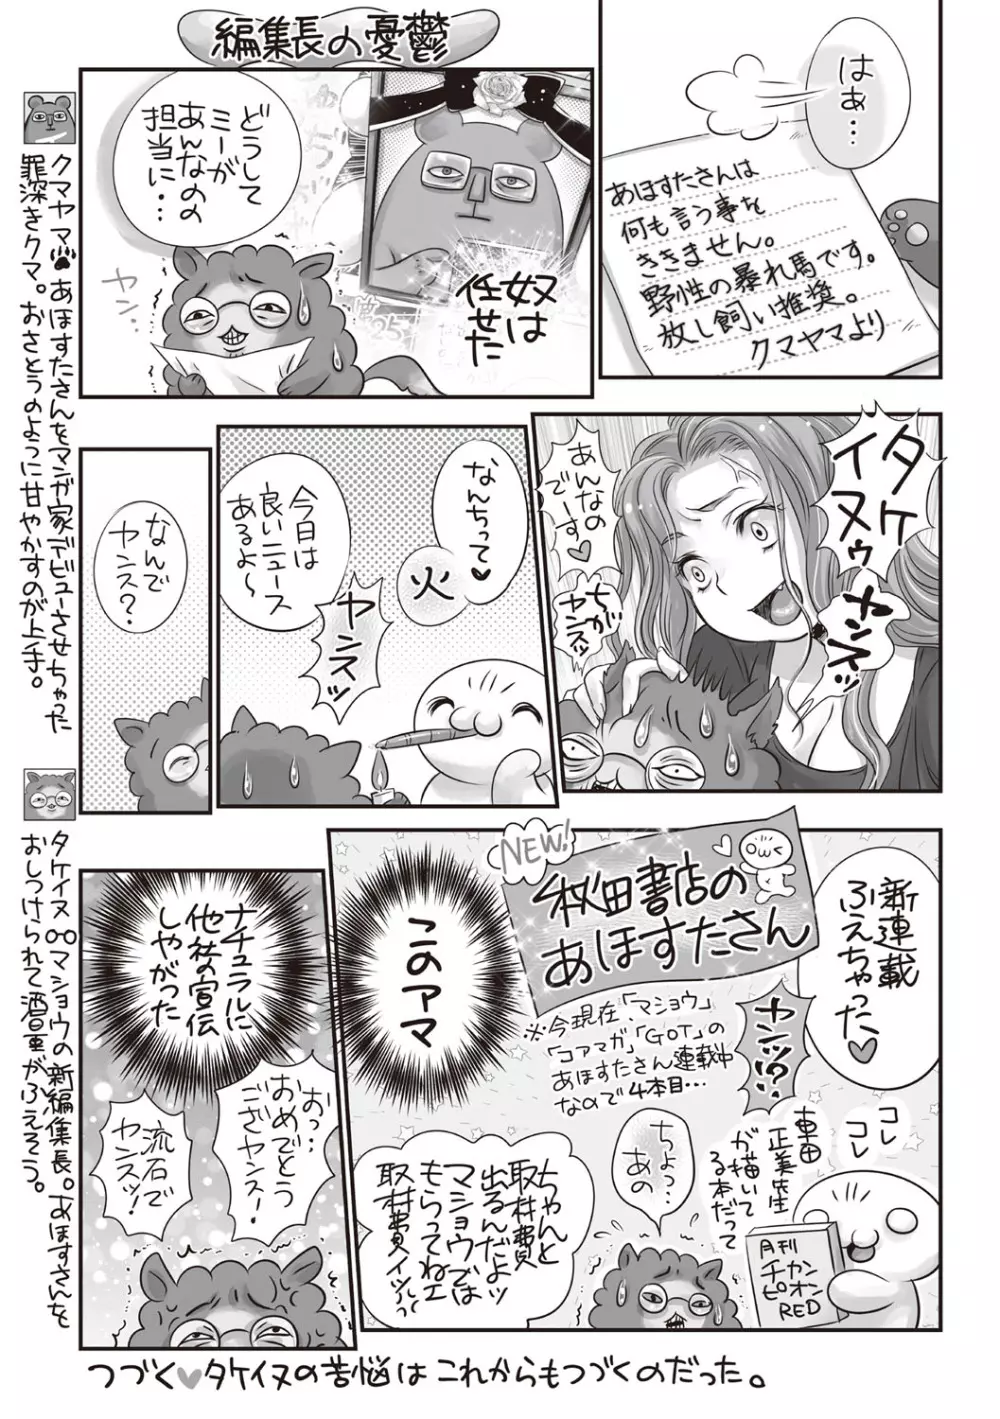 編集長の憂鬱
はぁ…
あほすたさんは
何も言う事を
ききません。
野性の暴れ馬です。
放し飼い推奨。
クマヤマより
どうして
ミーが
あんなのの
担当に…
ヤン…
奴は
任せた
タケ
イヌゥ
あんなの
でーす♡
ヤンスッ
ちが
ヤンスッ
なんちって♥
火
ヤンスッ
今日は
良いニュース
あるよ〜
なんで
ヤンス?
新連載
ふえちゃった♡
NEW!
秋田書店の
あほすたさん
ヤンッ!?
※今現在、「マショウ」
「コアマガ」「GOT」の
あほすたさん連載中
なので4本目…
コレ
コレ
車田
正美先生
が描いて
る本だって
月刊
チャンピ
オン
RED
ちょっ…
あの
ちゃんと
取材費
出るんだよッ
マショウでは
もらってねェ
取材費イッルッ
このアマ
ナチュラルに
他社の宣伝
しやがった
おっ…
おめでとう
ござヤンス!
流石で
ヤンスッ!
クマヤマ あほすたさんをマンガ家デビューさせちゃった
罪深きクマ。おさとうのように甘やかすのが上手。
タケイヌ マショウの新編集長。あほすたさんを
おしつけられて酒量がふえそう。
つづく♥タケイヌの苦悩はこれからもつづくのだった。